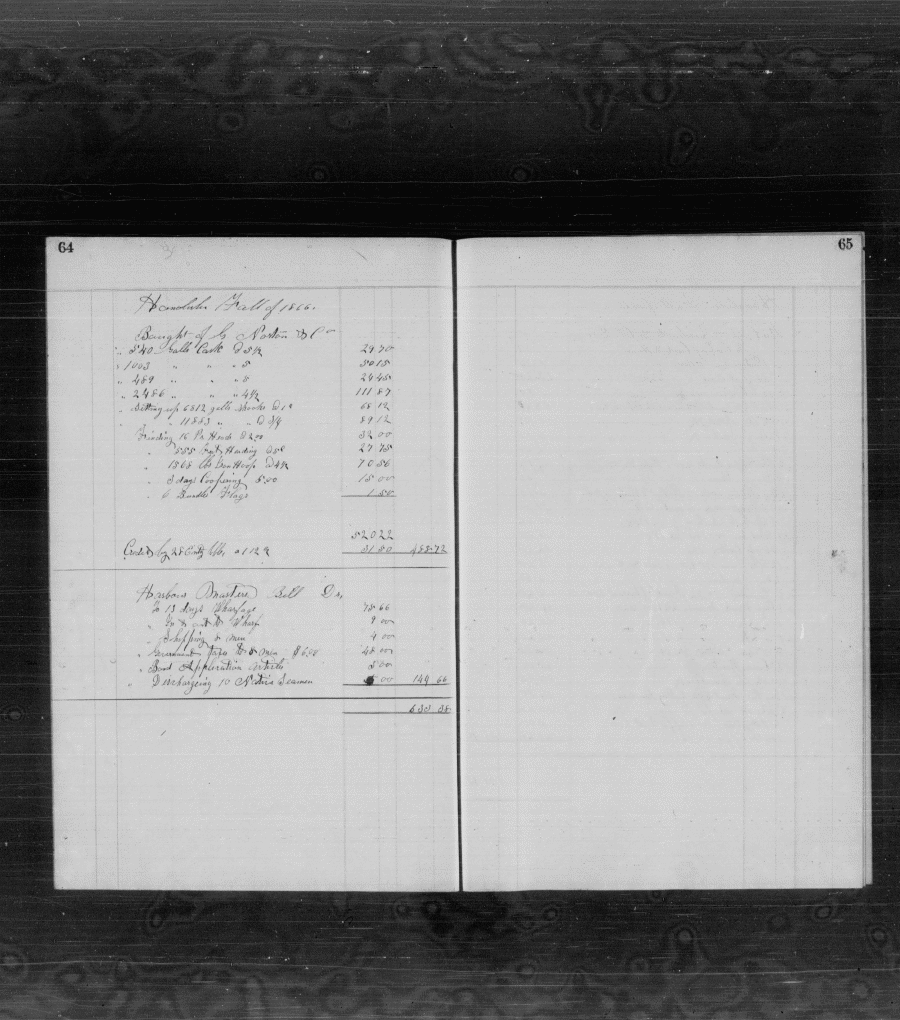 64
65
Honolulu Fall of 1866.
Bought of G Norton & Co
" 540 Galls Cask @ 5½ 29 70
" 1003 " " " 5 50 15
" 489 " " " 5 24 45
" 2486 " " " 4½ 111 87
" Setting up 6812 galls Shooks @ 1c 68 12
" " 11883 " " @ ¾ 89 12
Finding 16 Pr Heads 2.00 32 00
" 555 feet Heading @ 5c 27 75
" 1568 lbs Iron Hoop @ 4½ 70 56
" 3 days Coopering 5.00 15 00
" 6 Bundles Flags 1 50
520 22
Credit by 28 Empty 31 50 488.72
Harbour Masters Bill Dr
To 13 days Wharfage 78 66
" In & out to Wharf 9 00
" Shipping 8 men 4 00
" Government Tax 8 men $6.00 48 00
" Bond 5 00
" Discharging 10 Native Seamen 00 144 66
633 38